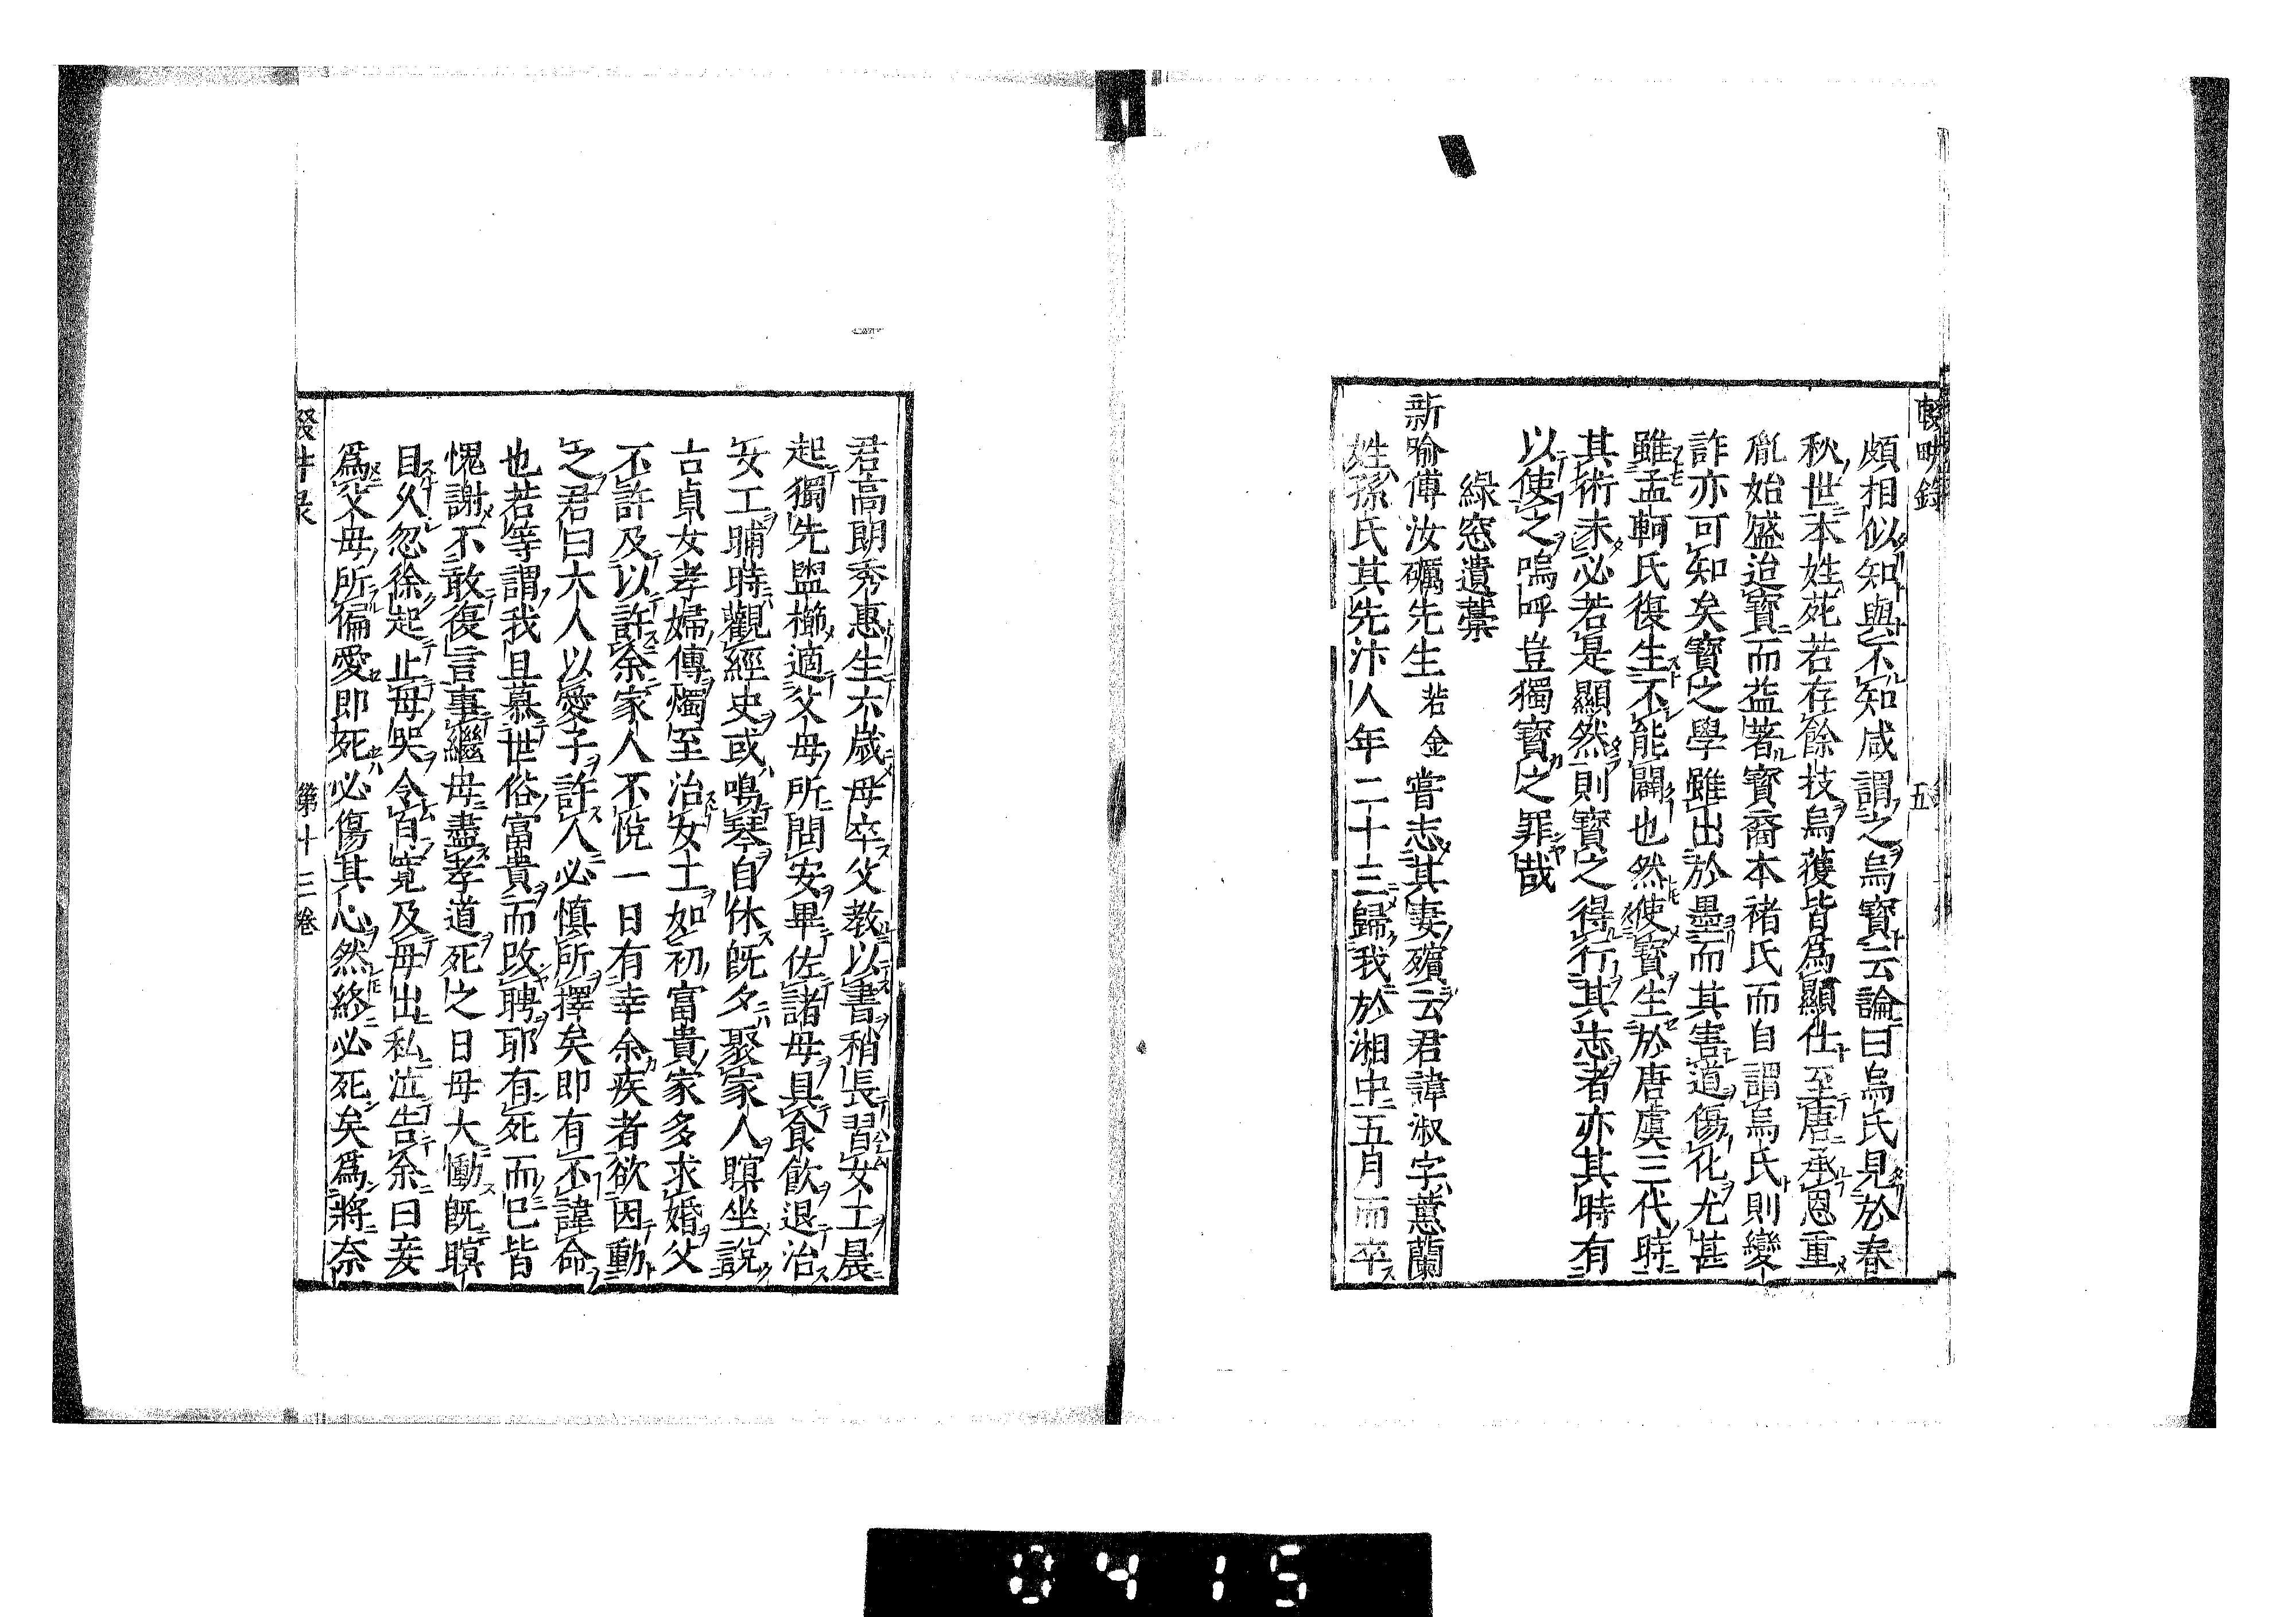 輟畊錄
五
頗相似知與不知咸謂之烏寶云論曰烏氏見於春
秋世本姓苑若存餘枝烏獲皆爲顯仕至唐承恩重
胤始盛迨寶而益著寶裔本褚氏而自謂烏氏則變
詐亦可知矣寶之學雖出於墨而其害道傷化尤甚
雖孟軻氏復生不能闢也然使寶生於唐虞三代時
其術未必若是顯然則寶之得行其志者亦其時有
以使之嗚呼豈獨寶之罪哉
綠窓遺藁
新喻傅汝礪先生若金嘗志其妻殯云君諱淑字蕙蘭
姓孫氏其先汴人年二十三歸我於湘中五月而卒
君高朗秀惠生六歲母卒父教以書稍長習女工晨
起獨先盥櫛適父母所問安畢佐諸母具食飲退治
女工晡時觀經史或鳴琴自休旣夕聚家人瞑坐說
古貞女孝婦傳燭至治女工如初富貴家多求婚父
不許及以許余家人不悅一日有幸余疾者欲因動
之君曰大人以愛子許人必愼所擇矣卽有不諱命
也若等謂我且慕世俗富貴而改聘耶有死而已皆
愧謝不敢復言事繼母盡孝道死之日母大慟旣瞑
目久忽徐起止母哭令自寬及母出私泣告余曰妾
爲父母所偏愛卽死必傷其心然終必死矣爲將奈
第十三卷
0415